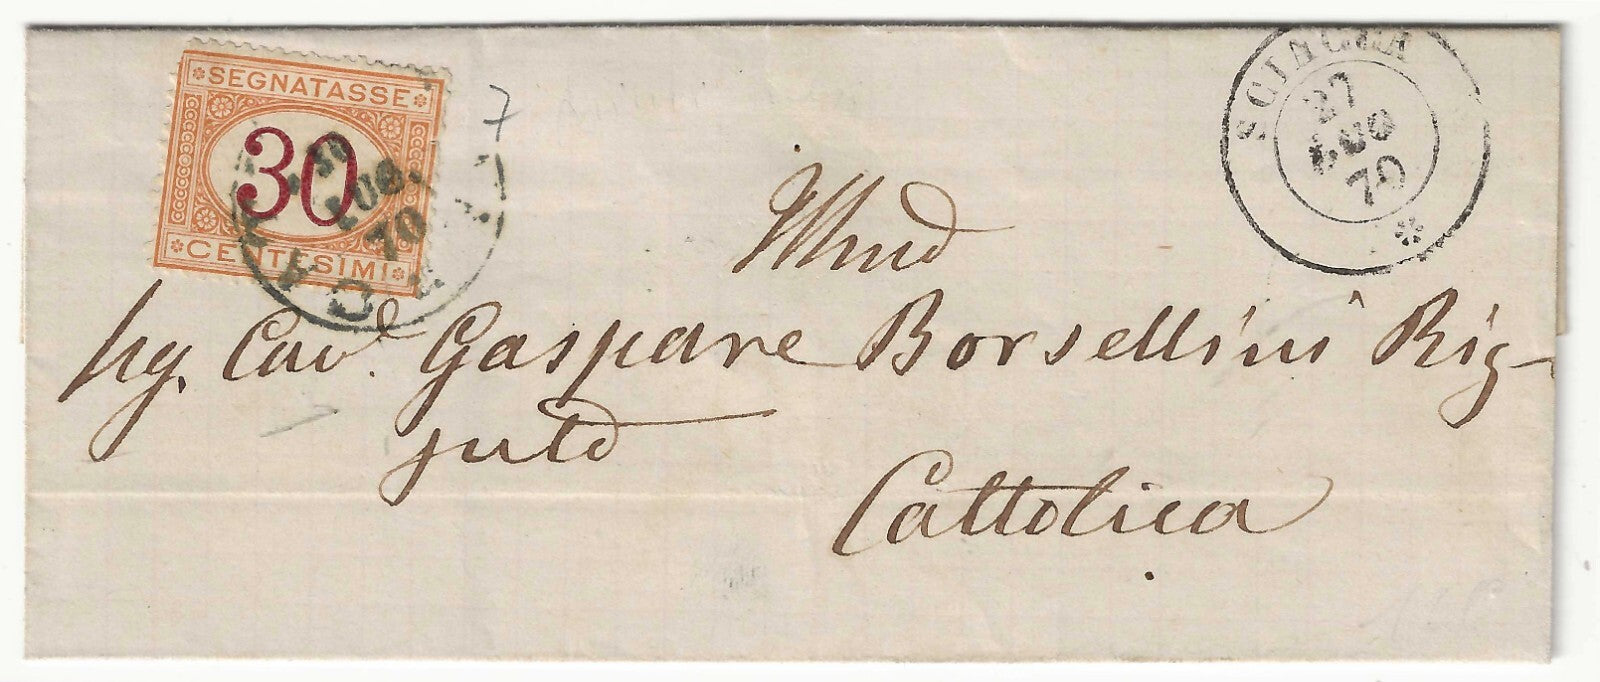 SEGNATASSE
30
CENTESIMI
LUG.
70
7
SCIACCA
27
LUG
70
Sig. Cav. Gaspare Borsellini Rig-
Cattolica